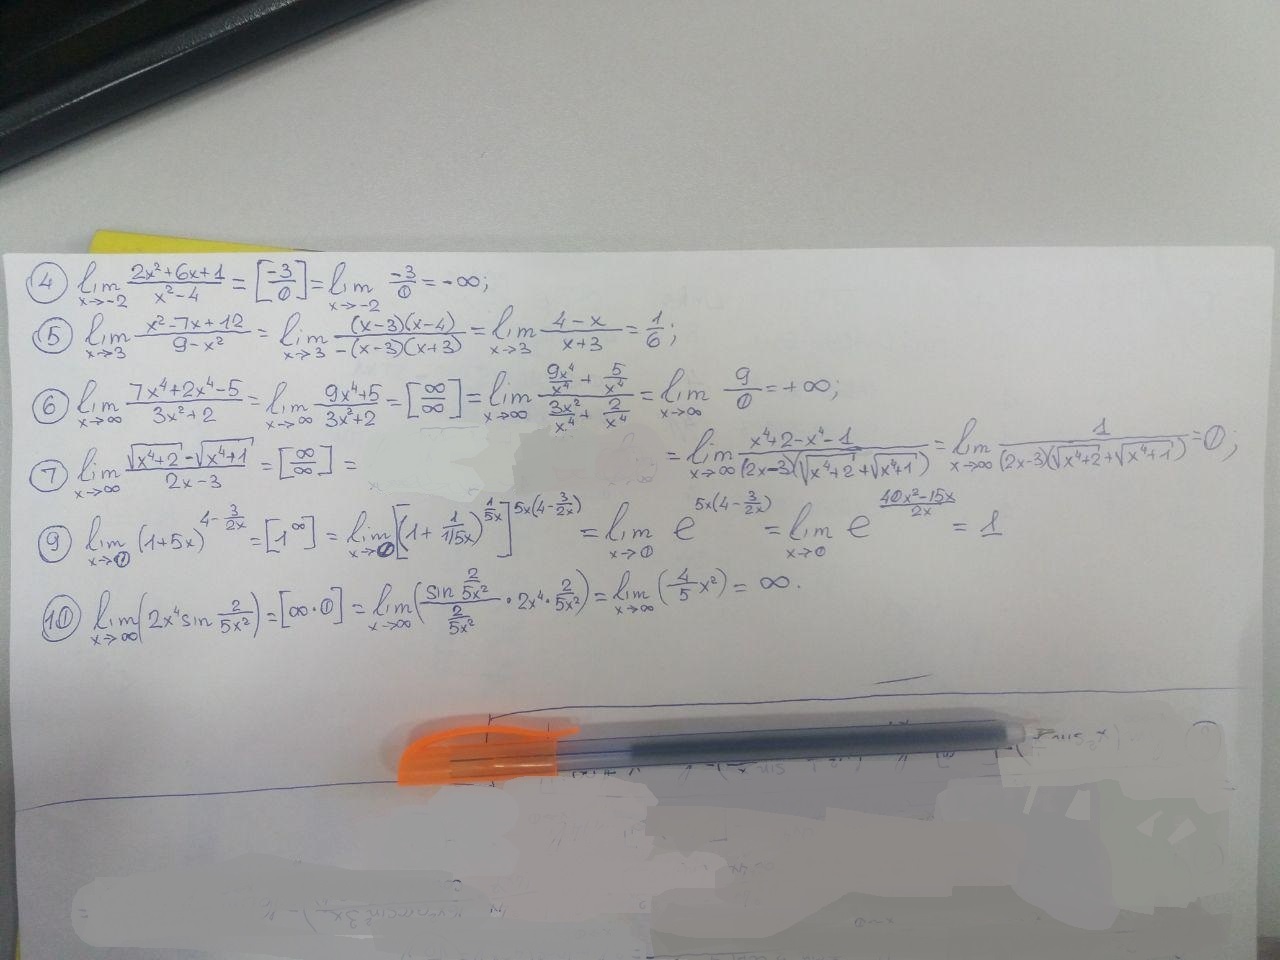 ④ lim x→-2 (2x²+6x+1)/(x²-4) = [-3/0] = lim x→-2 -3/0 = -∞;
⑤ lim x→3 (x²-7x+12)/(9-x²) = lim x→3 (x-3)(x-4)/(-(x-3)(x+3)) = lim x→3 (4-x)/(x+3) = 1/6;
⑥ lim x→∞ (7x⁴+2x⁴-5)/(3x²+2) = lim x→∞ (9x⁴+5)/(3x²+2) = [∞/∞] = lim x→∞ (9x⁴/x⁴ + 5/x⁴)/(3x²/x⁴ + 2/x⁴) = lim x→∞ 9/0 = +∞;
⑦ lim x→∞ (√(x⁴+2) - √(x⁴+1))/(2x-3) = [∞/∞] = = lim x→∞ (x⁴+2-x⁴-1)/((2x-3)(√(x⁴+2)+√(x⁴+1))) = lim x→∞ 1/((2x-3)(√(x⁴+2)+√(x⁴+1))) = 0;
⑨ lim x→0 (1+5x)^(4-3/(2x)) = [1^∞] = lim x→0 [(1+1/(1/5x))^(1/5x)]^(5x(4-3/(2x))) = lim x→0 e^(5x(4-3/(2x))) = lim x→0 e^((40x²-15x)/(2x)) = 1
⑩ lim x→∞ (2x⁴ sin 2/(5x²)) = [∞·0] = lim x→∞ ((sin 2/(5x²))/(2/(5x²)) · 2x⁴ · 2/(5x²)) = lim x→∞ (4/5 x²) = ∞.